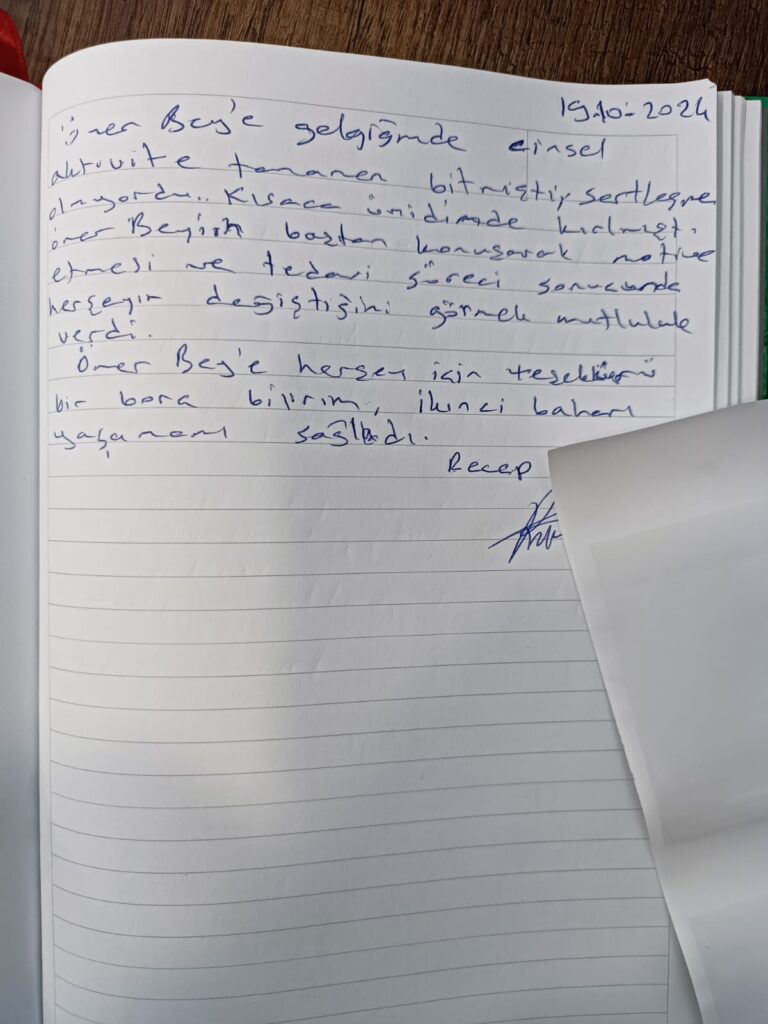 19.10.2024
Ömer Bey'e geldiğimde cinsel
aktivite tamamen bitmişti, sertleşme
olmuyordu.. Kısaca ümidimde kırılmıştı.
Ömer Beyin baştan konuşarak motive
etmesi ve tedavi süreci sonucunda
herşeyin değiştiğini görmek mutluluk
verdi.
Ömer Bey'e herşey için teşekkürü
bir borç bilirim, ikinci baharı
yaşamamı sağladı.
Recep